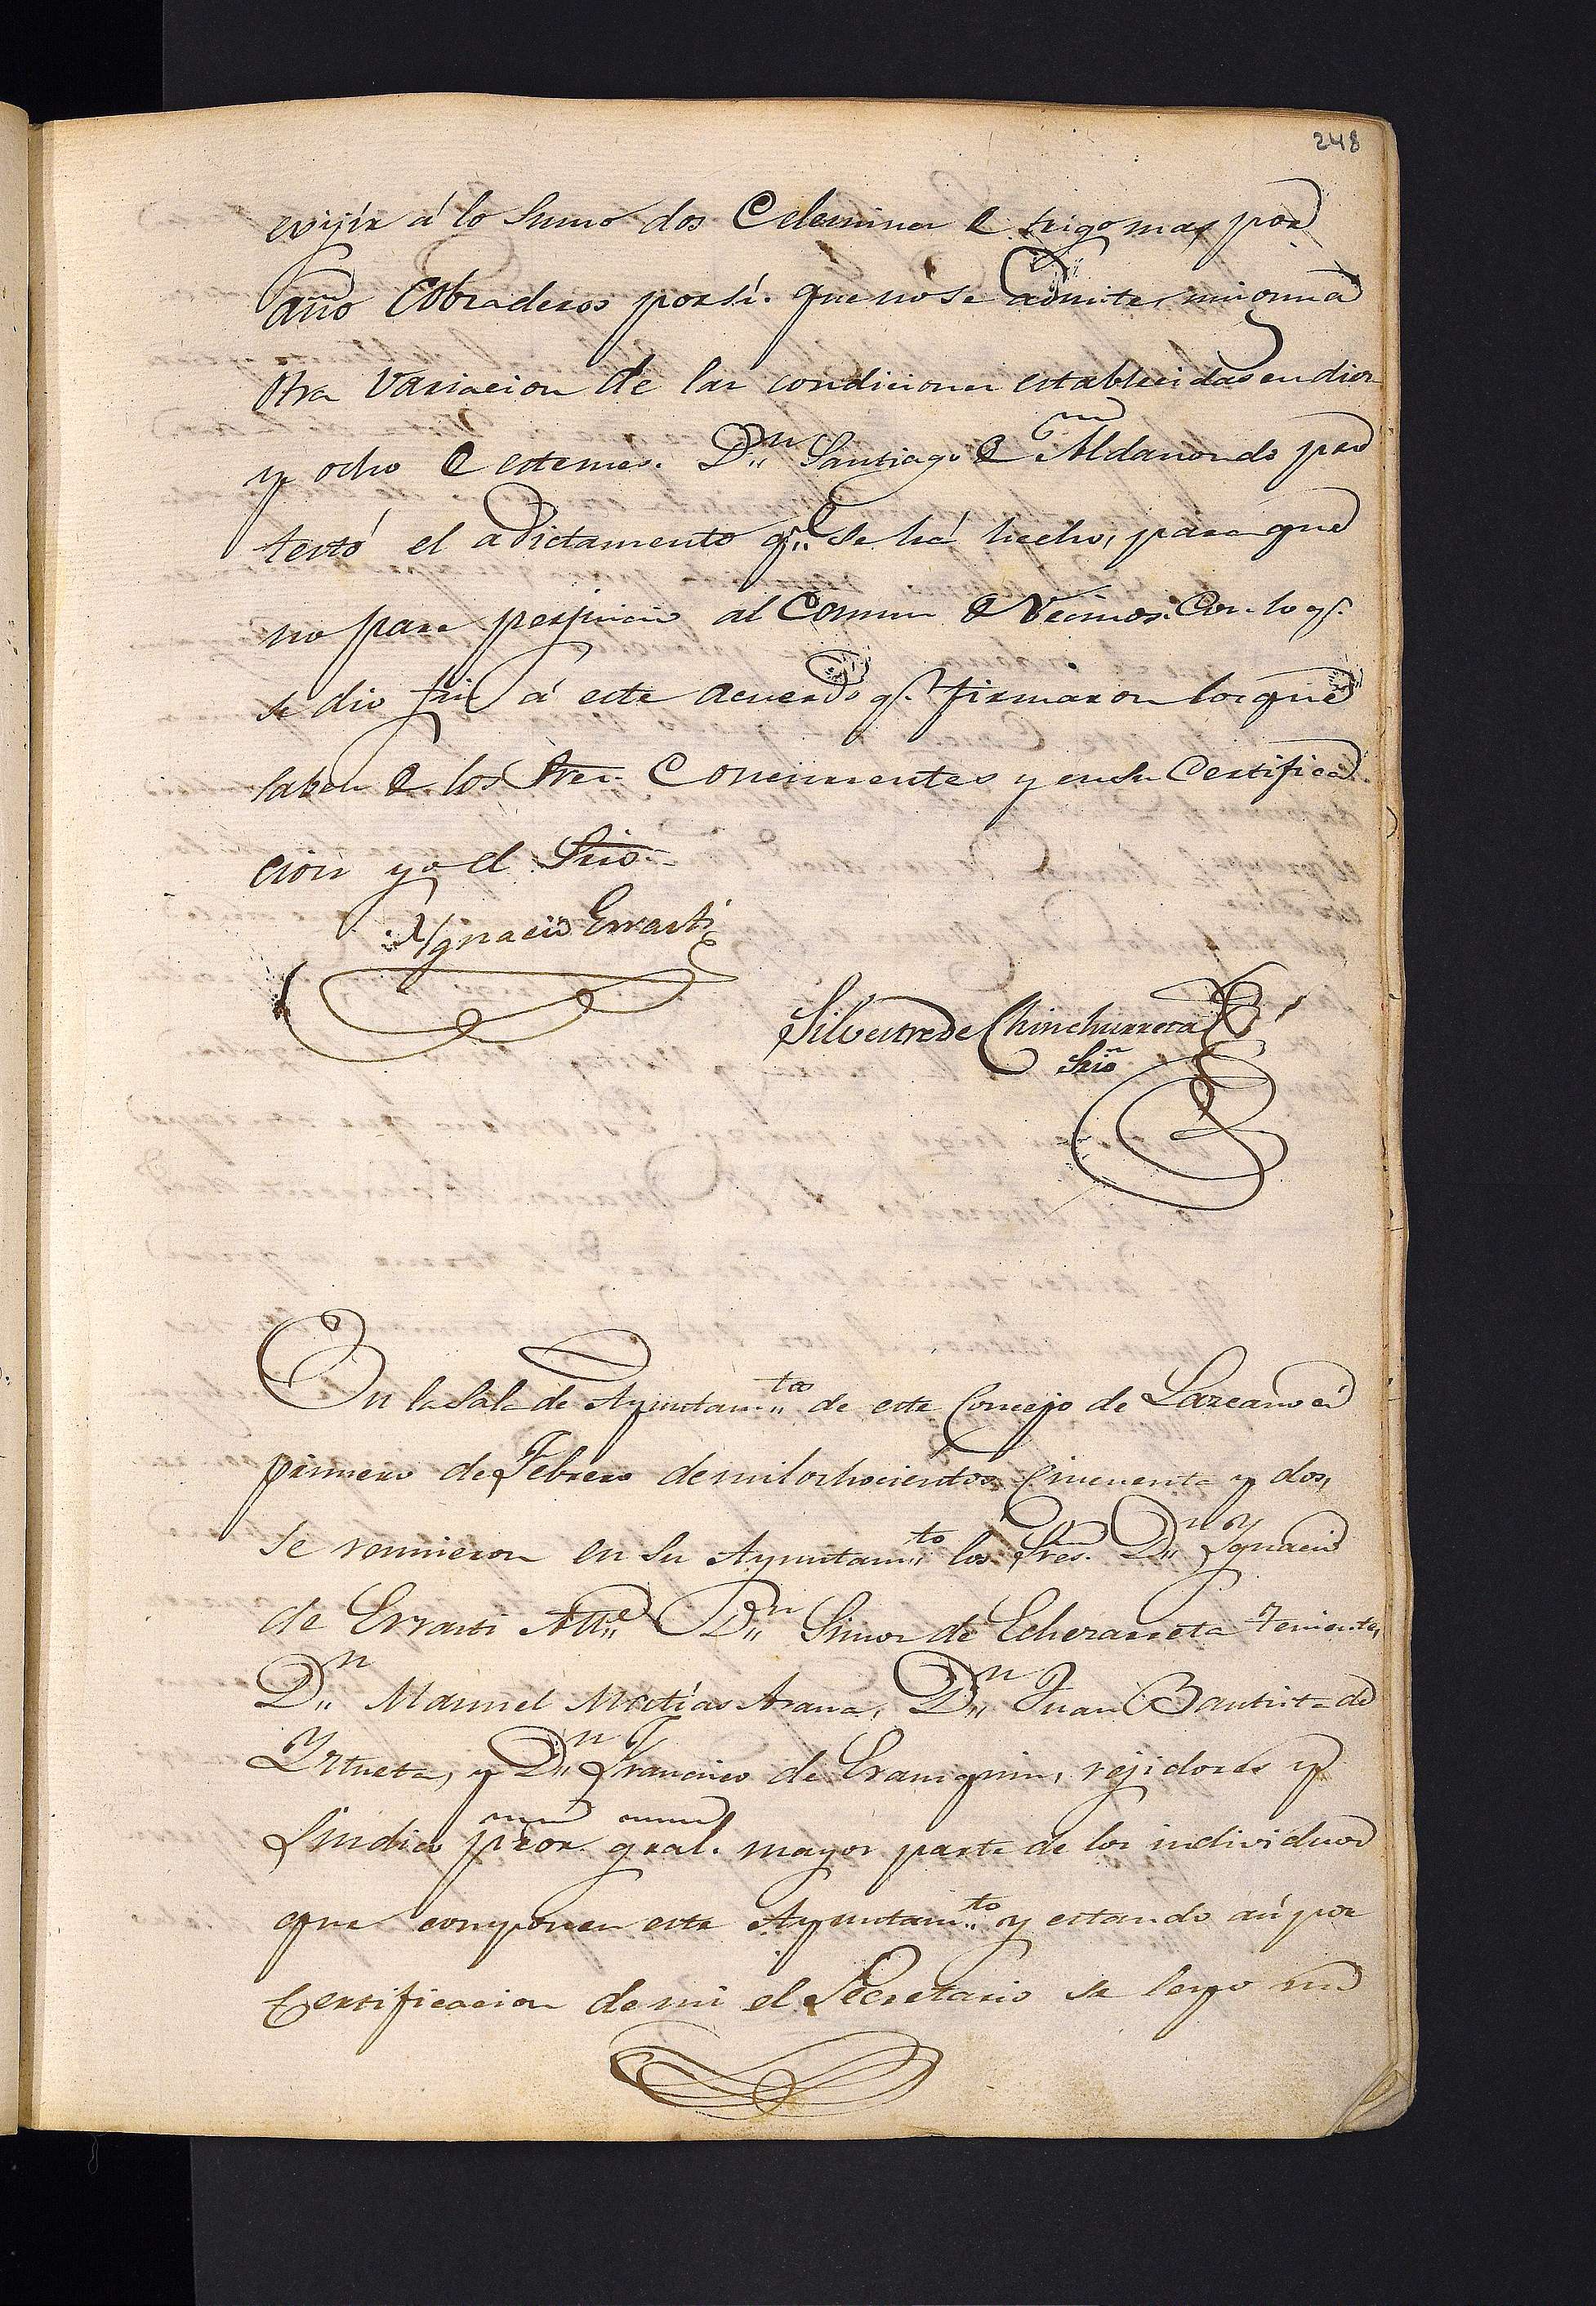 248
exijir á lo sumo dos Celemines de trigo mas por
año Cobraderos por sí. que no se admite ninguna
otra Variacion de las condiciones establecidas en diez
y ocho de este mes. D.n Santiago de Aldanondo pro
textó el adictamento q.e se há hecho, para que
no pare perjuicio al Comun de Vecinos. Con lo q.e
se dio fin á este acuerdo q.e firmaron los que
saben de los Sres. Concurrentes y en su Certifica
cion yo el Srio.
Ygnacio Errasti
Silvestre de Chinchurreta
Srio
En la Sala de Ayuntam.to de este Concejo de Lazcano á
primero de Febrero de mil ochocientos Cincuenta y dos,
se reunieron en su Ayuntam.to los Sres. D.n Ygnacio
de Errasti Alc.e D.n Simon de Echezarreta Teniente,
D.n Manuel Matías Arana, D.n Juan Bautista de
Yztueta, y D.n Francisco de Eranzquin, rejidores y
Sindico pror. gral. mayor parte de los individuos
que componen este Ayuntam.to y estando así por
Certificacion de mi el Secretario se leyo un